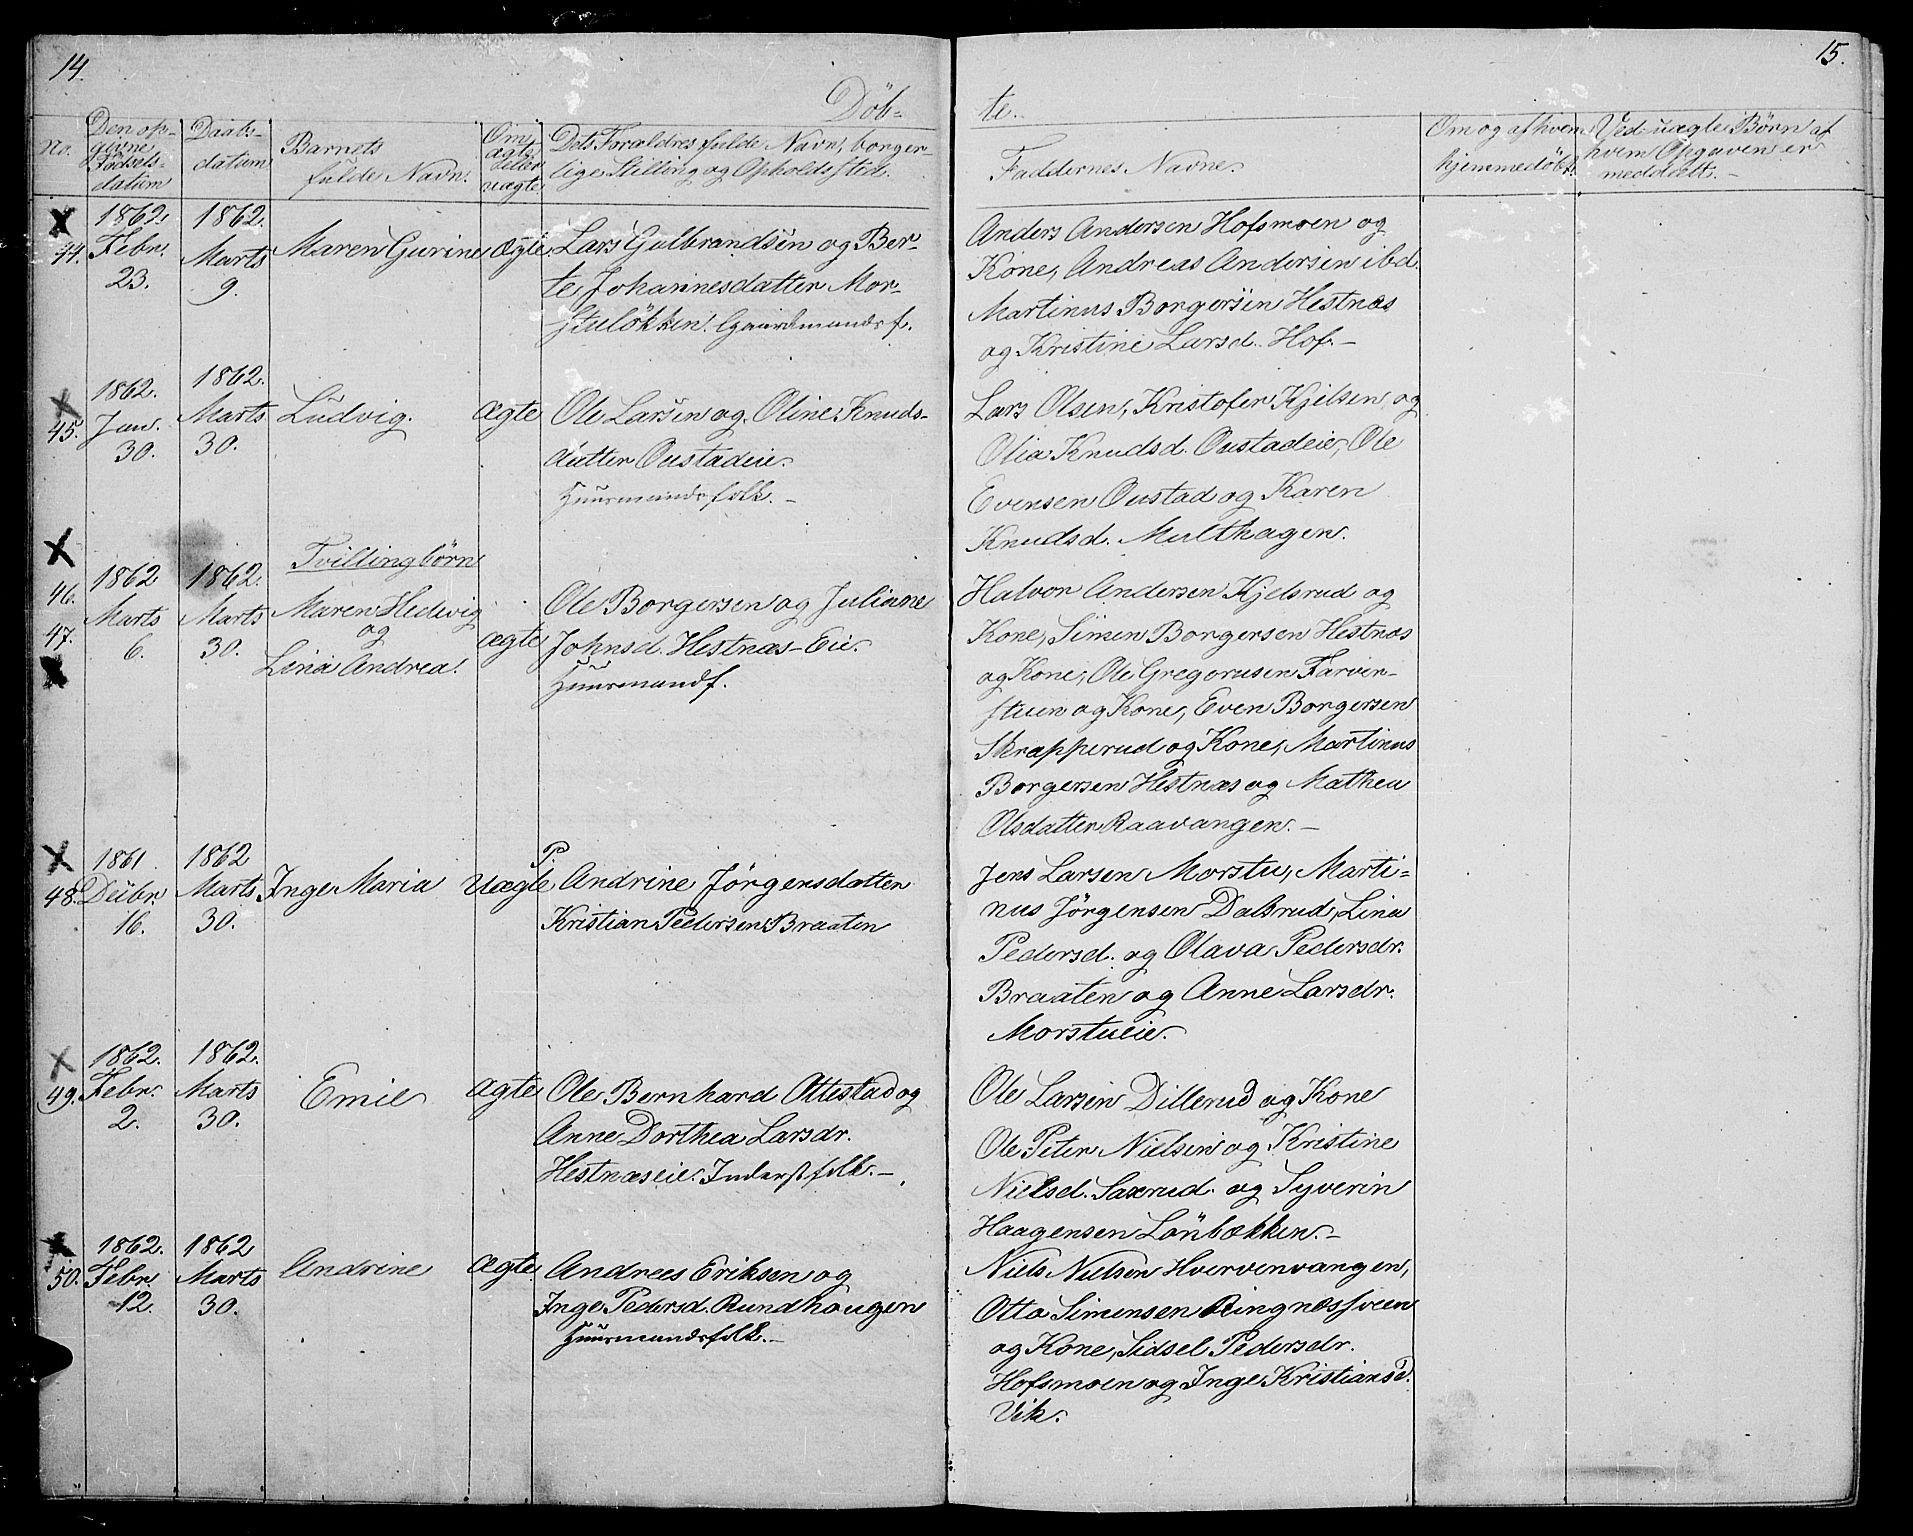 14.
15.
Döb-
te.
No.
Den op-
givne
Födsels-
datum
Daabs-
datum
Barnets
fulde Navn.
Om
ægte
eller
uægte
Dets Forældres fulde Navn, borger-
lige Stilling og Opholdssted.
Faddernes Navne.
Om og af hvem
hjemmedöbt.
Ved uægte Börn af
hvem Opgaven er
meddelt.
44.
1862.
Febr.
23.
1862.
Marts
9.
Maren Gurine
Ægte
Lars Gulbrandsen og Ber-
te Johannesdatter Mor-
stulökken. Gaardmandsf.
Anders Andersen Hofsmoen og
Kone, Andreas Andersen ibd.
Martinus Borgersen Hestnæs
og Kristine Larsd. Hof.
45.
1862.
Jan.
30.
1862.
Marts
30.
Ludvig.
ægte
Ole Larsen og Oline Knuds-
datter Oustadeie.
Huusmandsfolk.
Lars Olsen, Kristofer Kjelsen og
Olia Knudsd. Oustadeie, Ole
Evensen Oustad og Karen
Knudsd. Multhagen.
46.
47.
1862
Marts
6.
1862.
Marts
30.
Tvillingbörn
Maren Hedvig
og
Lina Andrea.
ægte
Ole Borgersen og Juliane
Johnsd. Hestnæs-Eie.
Huusmandf.
Halvor Andersen Kjelsrud og
Kone, Simen Borgersen Hestnæs
og Kone, Ole Gregorusen Farver-
stuen og Kone, Even Borgersen
Skrapperud og Kone, Martinus
Borgersen Hestnæs og Mathea
Olsdatter Raavangen.
48.
1861
Decbr.
16.
1862
Marts
30.
Inge Maria
Uægte
P.
Andrine Jörgensdatter
Kristian Pedersen Braaten
Jens Larsen Morstu, Marti-
nus Jörgensen Dalsrud, Lina
Pedersd. og Olava Pedersdr.
Braaten og Anne Larsdr.
Morstueie.
49.
1862.
Febr.
2.
1862.
Marts
30.
Emil
ægte
Ole Bernhard Ottestad og
Anne Dorthea Larsdr.
Hestnæseie. Inderstfolk.
Ole Larsen Dillerud og Kone
Ole Peter Nielsen og Kristine
Nielsd. Saxerud og Syverin
Haagensen Lönbækken.
50.
1862.
Febr.
12.
1862
Marts
30.
Andrine
ægte
Andrees Eriksen og
Inge Pedersd. Rundhaugen
Huusmandsfolk.
Niels Nielsen Hvervenvangen,
Otto Simensen Ringnæssveen
og Kone, Sidsel Pedersdr.
Hofsmoen og Inge Kristiansd.
Vik.